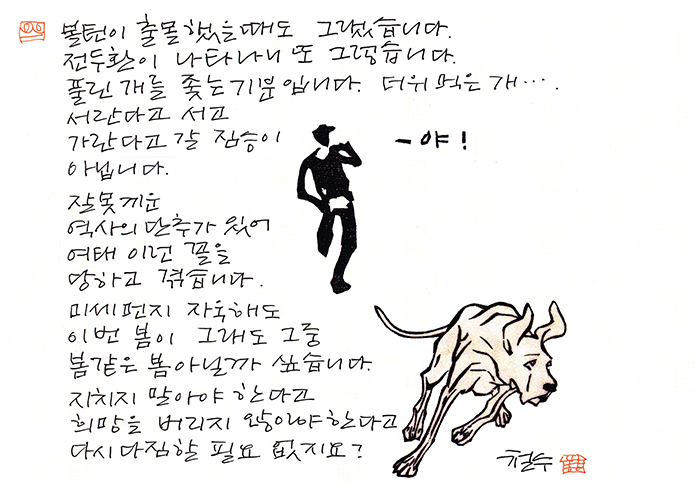 볼턴이 출몰했을때도 그랬습니다.
전두환이 나타나니 또 그렇습니다.
풀린 개를 쫓는기분입니다. 더위 먹은 개….
서란다고 서고
가란다고 갈 짐승이
아닙니다.
– 야!
잘못끼운
역사의 단추가 있어
여태 이런 꼴을
당하고 겪습니다.
미세먼지 자욱해도
이번 봄이 그래도 그중
봄같은 봄아닐까 싶습니다.
지치지 말아야 한다고
희망을 버리지 않아야한다고
다시다짐할 필요 없지요?
철수